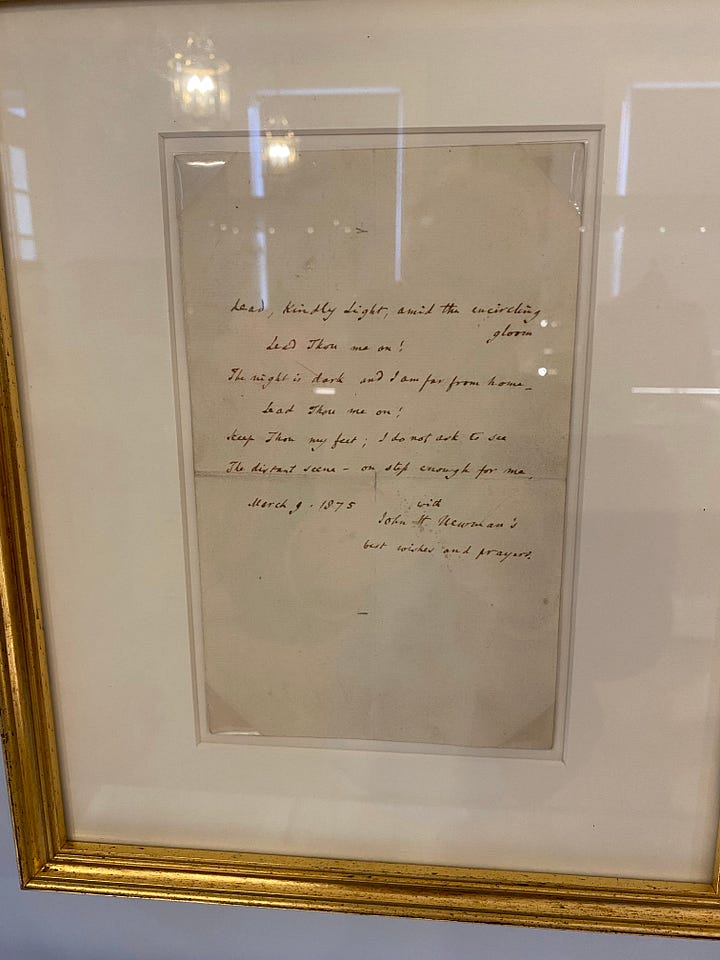 Lead, Kindly Light, amid the encircling
gloom
Lead Thou me on!
The night is dark and I am far from home—
Lead Thou me on!
Keep Thou my feet; I do not ask to see
The distant scene – on step enough for me.
March 9. 1875
with
John H Newman's
best wishes and prayers.